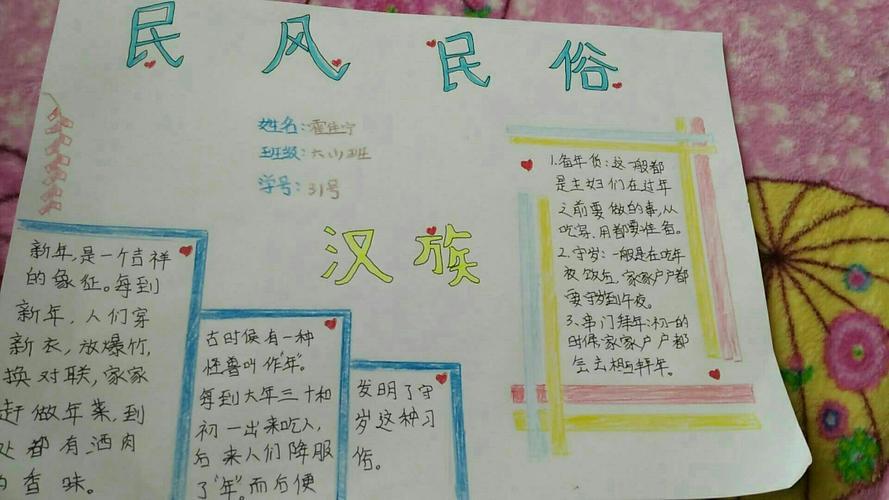 民风民俗
姓名:霍佳宁
班级:六(1)班
学号:31号
汉族
新年,是一个吉祥
的象征。每到
新年,人们穿
新衣,放爆竹,
换对联,家家
赶做年菜,到
处都有酒肉
的香味。
古时候有一种
怪兽叫作“年”。
每到大年三十和
初一出来吃人,
后来人们降服
了“年”。而后便
发明了守
岁这种习
俗。
1.备年货:这一般都
是主妇们在过年
之前要做的事,从
吃穿、用都要准备。
2.守岁:一般是在吃年
夜饭后,家家户户都
要守岁到午夜。
3、串门拜年:初一的
时候家家户户都
会去相互拜年。